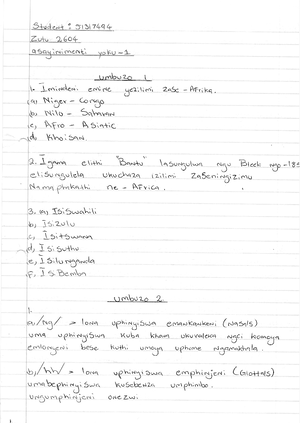 Student : 51317494
Zulu 2604
asayinimenti yoku-1
umbuzo 1
1. Imindeni emine yezilimi zase-Afrika.
(a) Niger-Congo
(b) Nilo-Saharan
(c) Afro-Asiatic
(d) Khoisan
2. Igama elithi "Bantu" lasungulwa ngu Bleek ngo-185
elisungulela ukuchaza izilimi zaseningizimu
Namaphakathi ne-Africa.
3. (a) Isiswahili
b, Isizulu
c, Isitswana
d, Isisuthu
e, Isilunganda
f, IsBemba
umbuzo 2
1.
a,/ng/ => lona uphinyiswa emankankeni (nasals)
uma uphinyiswa kuba khona ukuvaleka ngci komoya
emlonyeni bese kuthi umoya uphume ngamakhala.
b,/hh/ = lona uphinyiswa emphinjeni (Glottals)
umabephinyiswa kusebenza umphimbo.
ungumphinjeni onezwi